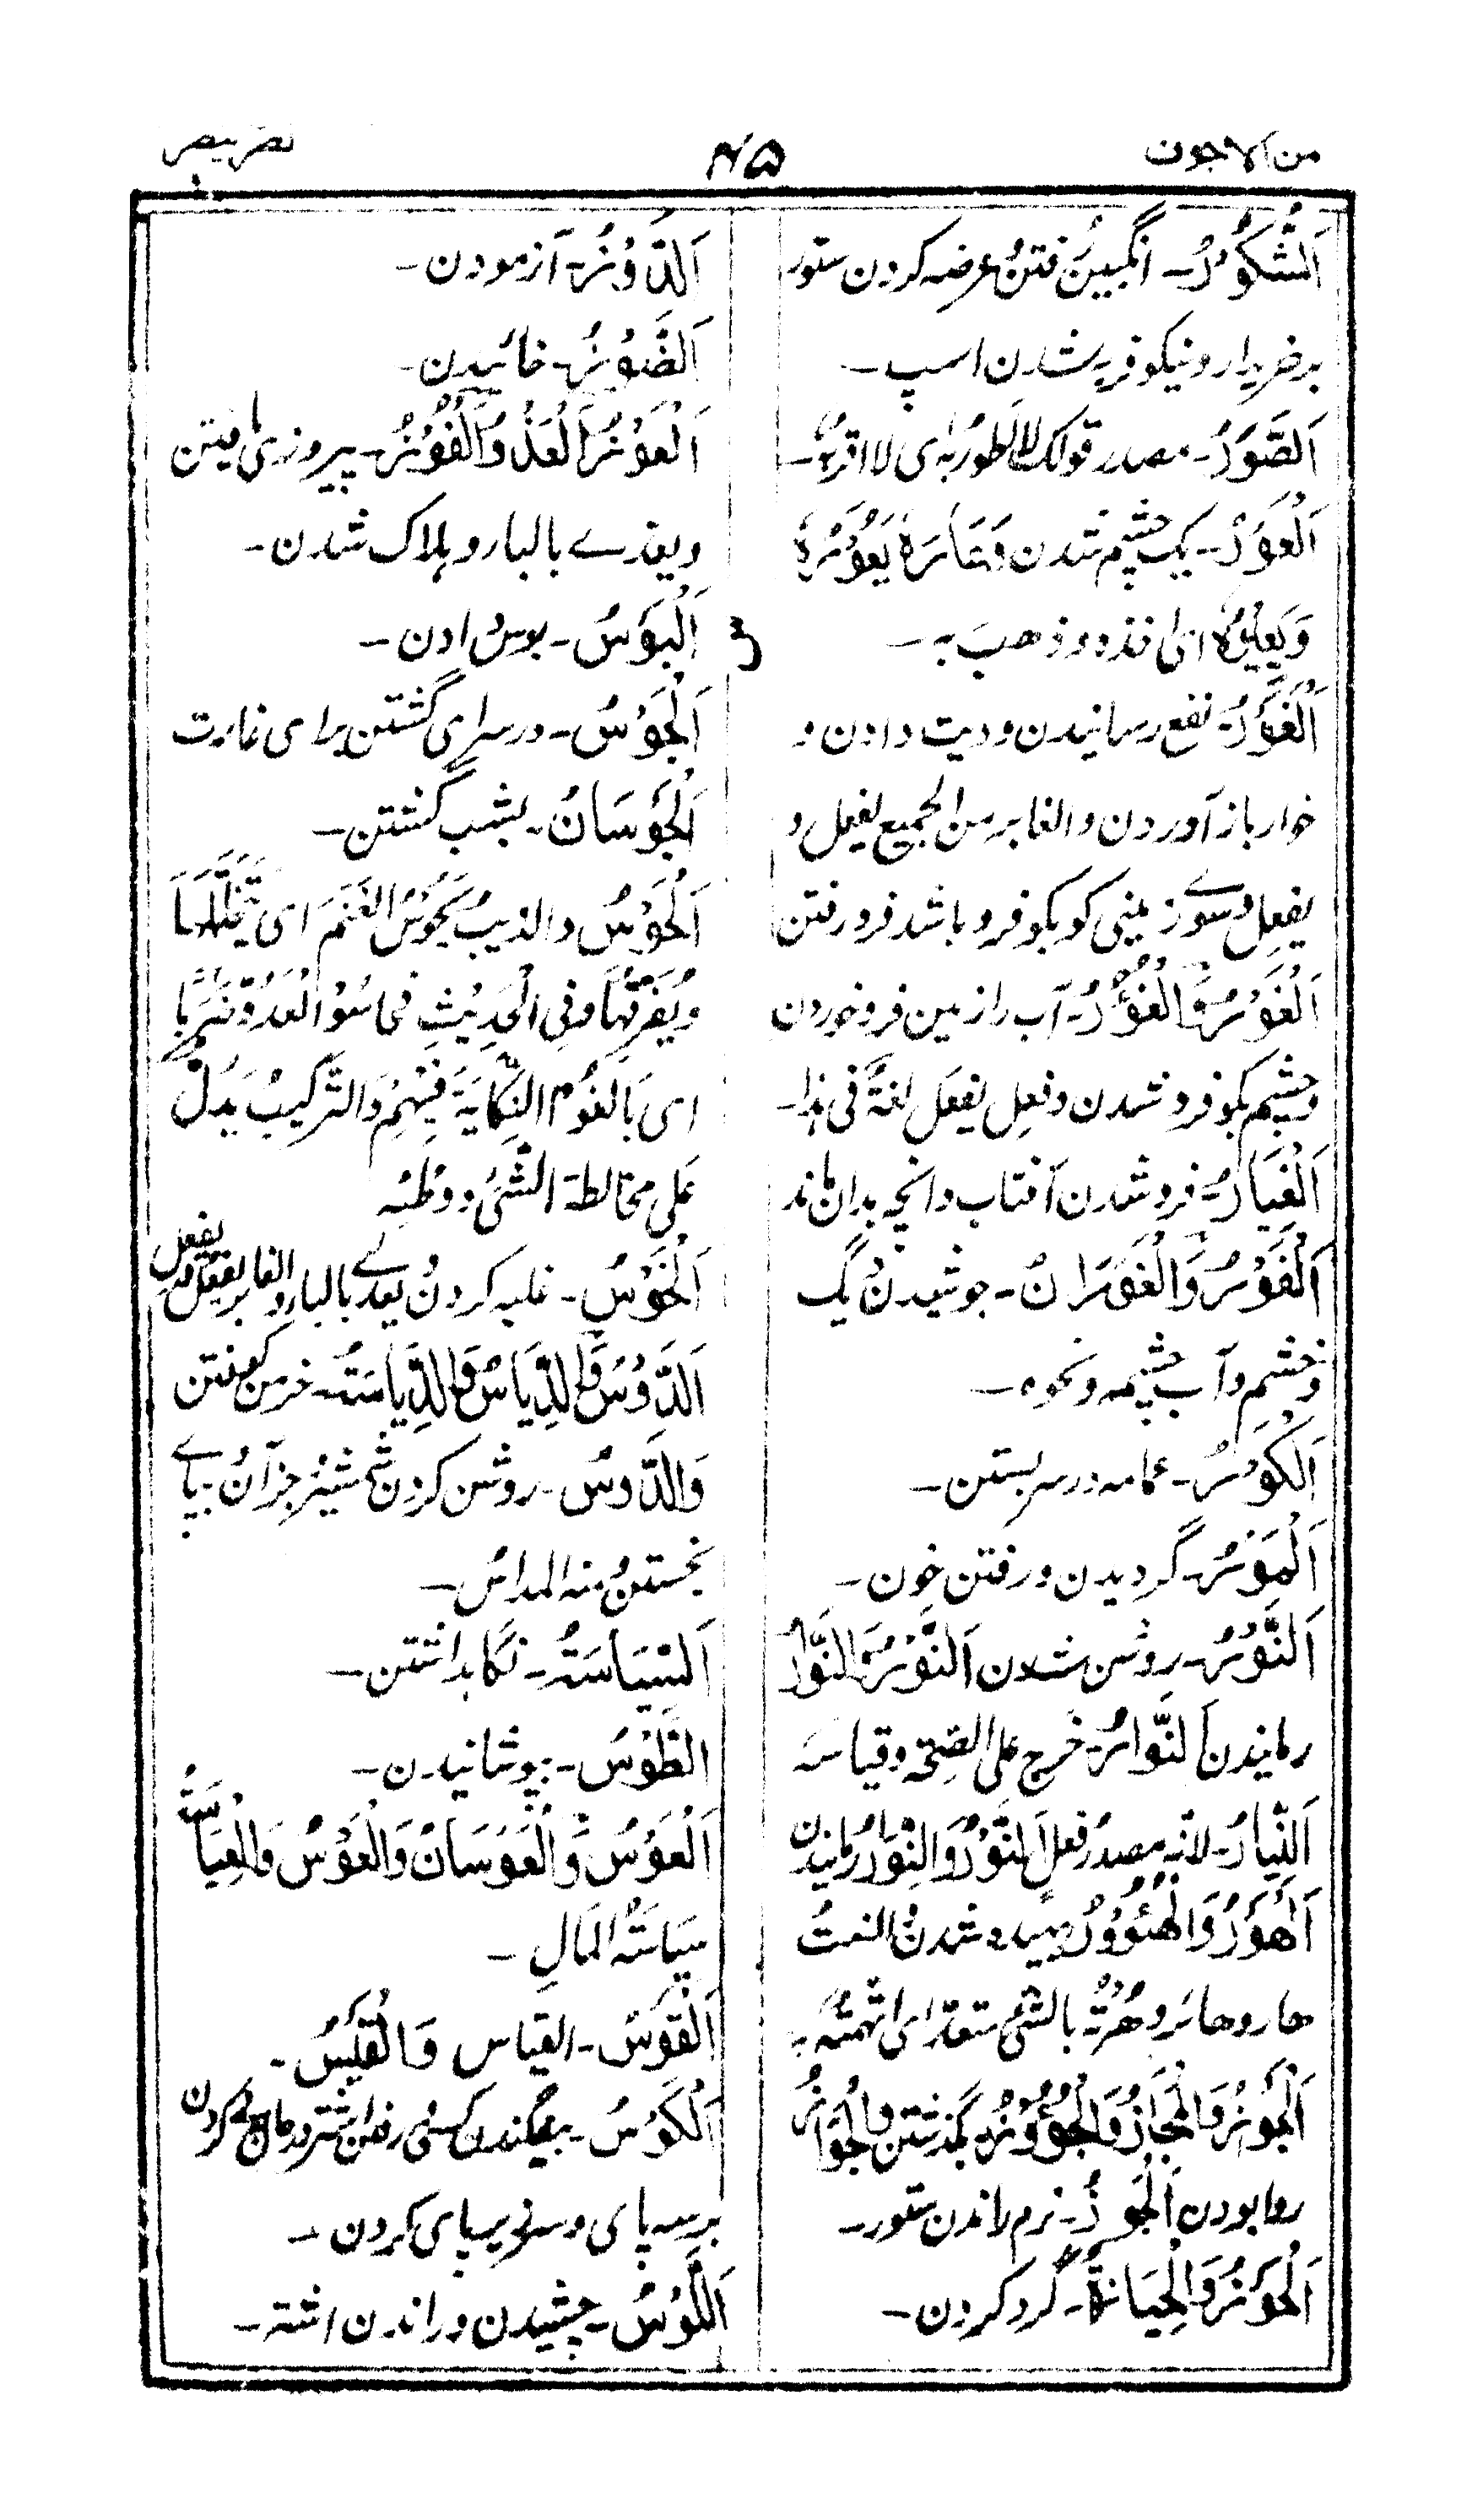 من الاجوف
۴۵
نصر ینصر
اَلشَّوْرُ۔ انگبین رفتن و عرضہ کردن ستور
بر خریدار و نیکو فربہ شدن اسپ۔
اَلصَّوْرُ۔ مصدر قولک لا اطور بہ ای لا اقربہ۔
اَلْعَوَرُ۔ یک چشم شدن وَعَارَهٗ یَعُوْرُهٗ
وَیَعِیْرُهٗ ای اخذہ و ذھب بہ۔
اَلْغَوْرُ۔ نفع رسانیدن و دیت دادن و
خوار باز آوردن و الغابر من الجمیع یفعل و
یفعِل و سوے زمینی کو بکو فرو باشد فرو رفتن
اَلْغَوْرُ وَالْغُؤُوْرُ۔ آب را زمین فرو خوردن
و چشم بکو فرو شدن و فعِل یفعَل لغۃ فی ہذا۔
اَلْغِیَارُ۔ فرو شدن آفتاب و آنچہ بدان ماند
اَلْفَوْرُ وَالْفَوَرَانُ۔ جوشیدن دیگ
و خشم و آب چشمہ و نحوہ۔
اَلْکَوْرُ۔ عمامہ در سر بستن۔
اَلْمَوْرُ۔ گردیدن و رفتن خون۔
اَلنَّوْرُ۔ روشن شدن اَلنَّوْرُ وَالنَّوَارُ
رمانیدن اَلنَّوَارُ۔ خرج علی الصحۃ و قیاسہ
اَلنِّیَارُ۔ لانہ مصدر فعل اَلنَّوْرُ وَالنِّوَارُ رمانیدن
اَلْهَوْرُ وَالْهُؤُوْرُ۔ شدن النعت
ھار و ھائر و ھُرْتُہٗ بالشیٔ متعد ای اتھمتہ بہ
اَلْجَوْزُ وَالْمَجَازُ وَالْجُؤُوْزُ۔ گذشتن وَالْجَوَازُ
روا بودن اَلْجَوْزُ۔ نرم راندن ستور۔
اَلْحَوْزُ وَالْحِیَازَةُ۔ گرد کردن۔
اَلدَّوْزُ۔ آزمودن۔
اَلضَّوْزُ۔ خائیدن۔
اَلْفَوْزُ۔ پیروزی یافتن
و یعدے بالبار و ہلاک شدن۔
س
اَلْبَوْسُ۔ بوس دادن۔
اَلْجَوْسُ۔ در سرای گشتن برای غارت
اَلْجَوَسَانُ۔ بشب گشتن۔
اَلْحَوْسُ والذیب یَحُوْسُ الغَنَمَ ای یَتَخَلَّلُهَا
وَیُفَرِّقُهَا وَفِی الْحَدِیْثِ فحاسُوْا الْعَدُوَّ ضَرْبًا
ای بَالَغُوْا النِّکَایَةَ فِیْهِمْ وَالتَّرْکِیْبُ یَدُلُّ
عَلٰی مخالطة الشَّیْءِ و وطئہ
اَلْخَوْسُ۔ غلبہ کردن یعدے بالبار و الغابر یفعل و یفعل
اَلدَّوْسُ وَالدِّیَاسُ وَالدِّیَاسَةُ۔ خرمن کوفتن
وَالدَّوْسُ۔ روشن کردن شمشیر و جز آن بپاے
بخستن و منہ المداس۔
اَلسِّیَاسَةُ۔ نگاہداشتن۔
الطَّوْسُ۔ پوشانیدن۔
اَلْعَوْسُ وَالْعَوَسَانُ وَالْعَوْسُ وَالْعِیَاسَةُ
سِیَاسَةُ الْمَالِ۔
اَلْقَوْسُ۔ القیاس وَالْقَیْسُ۔
اَلْکَوْسُ۔ بیفگندن کسے و رفتن اشتر کردن
بر سہ پای و سر زیر پای کردن۔
اَللَّوْسُ۔ چشیدن و راندن اشتہ۔